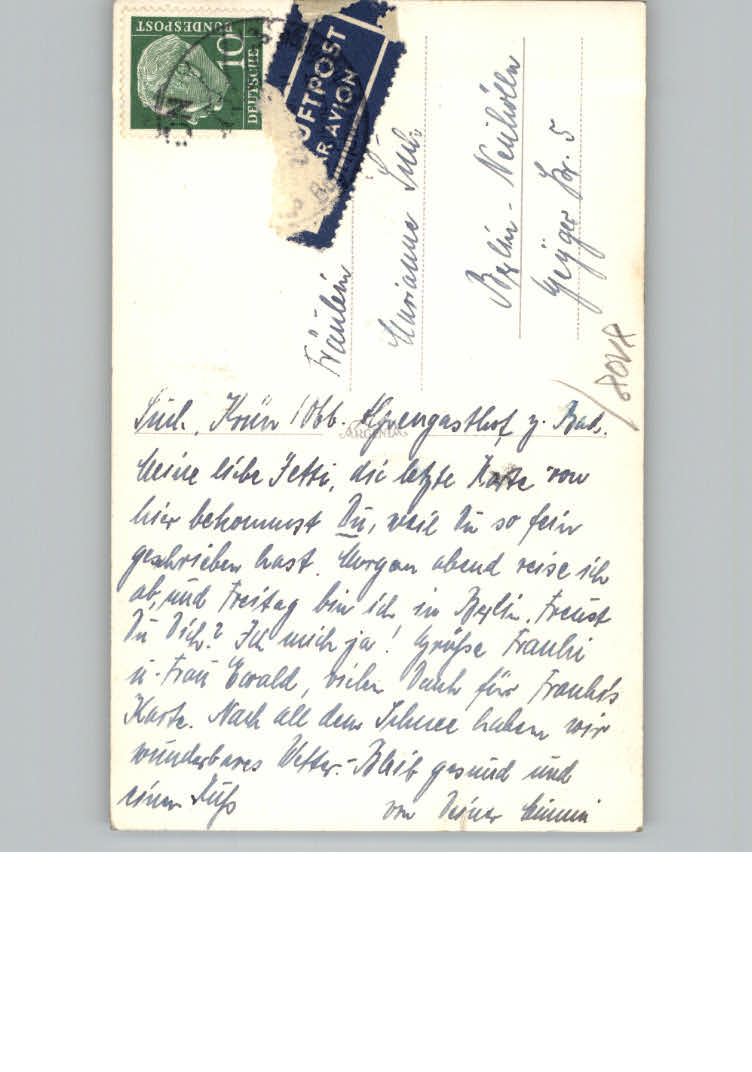 DEUTSCHE
BUNDESPOST
10
LUFTPOST
PAR AVION
Fräulein
Marianne
Berlin - Neukölln
Geyger Str. 5
Krün / Obb. Alpengasthof z. Bad.
Meine liebe Jetti, die letzte Karte von
hier bekommst Du, weil Du so fein
geschrieben hast. Morgen abend reise ich
ab, und Freitag bin ich in Berlin. Freust
Du Dich? Ich mich ja! Grüße Frauki
u. Frau Ewald, vielen Dank für Frauki's
Karte. Nach all dem Schnee haben wir
wunderbares Wetter. - Bleib gesund und
einen Kuß
von Deiner Mimmi